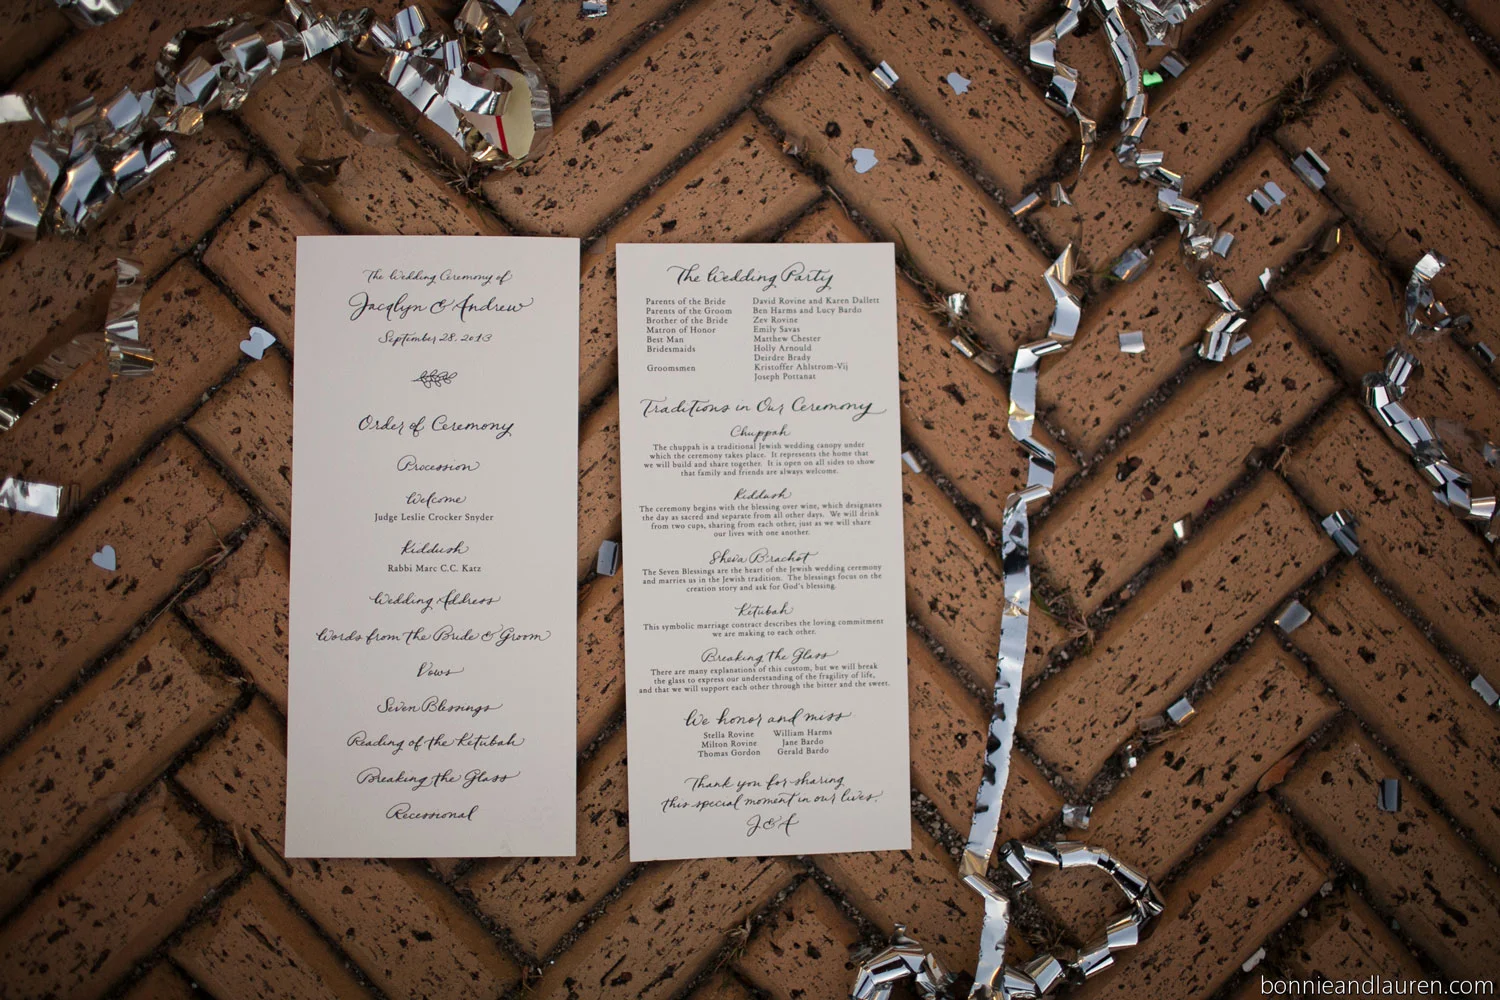 The Wedding Ceremony of
Jacqlyn & Andrew
September 28, 2013
Order of Ceremony
Procession
Welcome
Judge Leslie Crocker Snyder
Kiddush
Rabbi Marc C.C. Katz
Wedding Address
Words from the Bride & Groom
Vows
Seven Blessings
Reading of the Ketubah
Breaking the Glass
Recessional
The Wedding Party
Parents of the Bride David Rovine and Karen Dallett
Parents of the Groom Ben Harms and Lucy Bardo
Brother of the Bride Zev Rovine
Matron of Honor Emily Savas
Best Man Matthew Chester
Bridesmaids Holly Arnould
Deirdre Brady
Groomsmen Kristoffer Ahlstrom-Vij
Joseph Pottanat
Traditions in Our Ceremony
Chuppah
The chuppah is a traditional Jewish wedding canopy under
which the ceremony takes place. It represents the home that
we will build and share together. It is open on all sides to show
that family and friends are always welcome.
Kiddush
The ceremony begins with the blessing over wine, which designates
the day as sacred and separate from all other days. We will drink
from two cups, sharing from each other, just as we will share
our lives with one another.
Sheva Brachot
The Seven Blessings are the heart of the Jewish wedding ceremony
and marries us in the Jewish tradition. The blessings focus on the
creation story and ask for God's blessing.
Ketubah
This symbolic marriage contract describes the loving commitment
we are making to each other.
Breaking the Glass
There are many explanations of this custom, but we will break
the glass to express our understanding of the fragility of life,
and that we will support each other through the bitter and the sweet.
We honor and miss
Stella Rovine William Harms
Milton Rovine Jane Bardo
Thomas Gordon Gerald Bardo
Thank you for sharing
this special moment in our lives.
J & A
bonnieandlauren.com